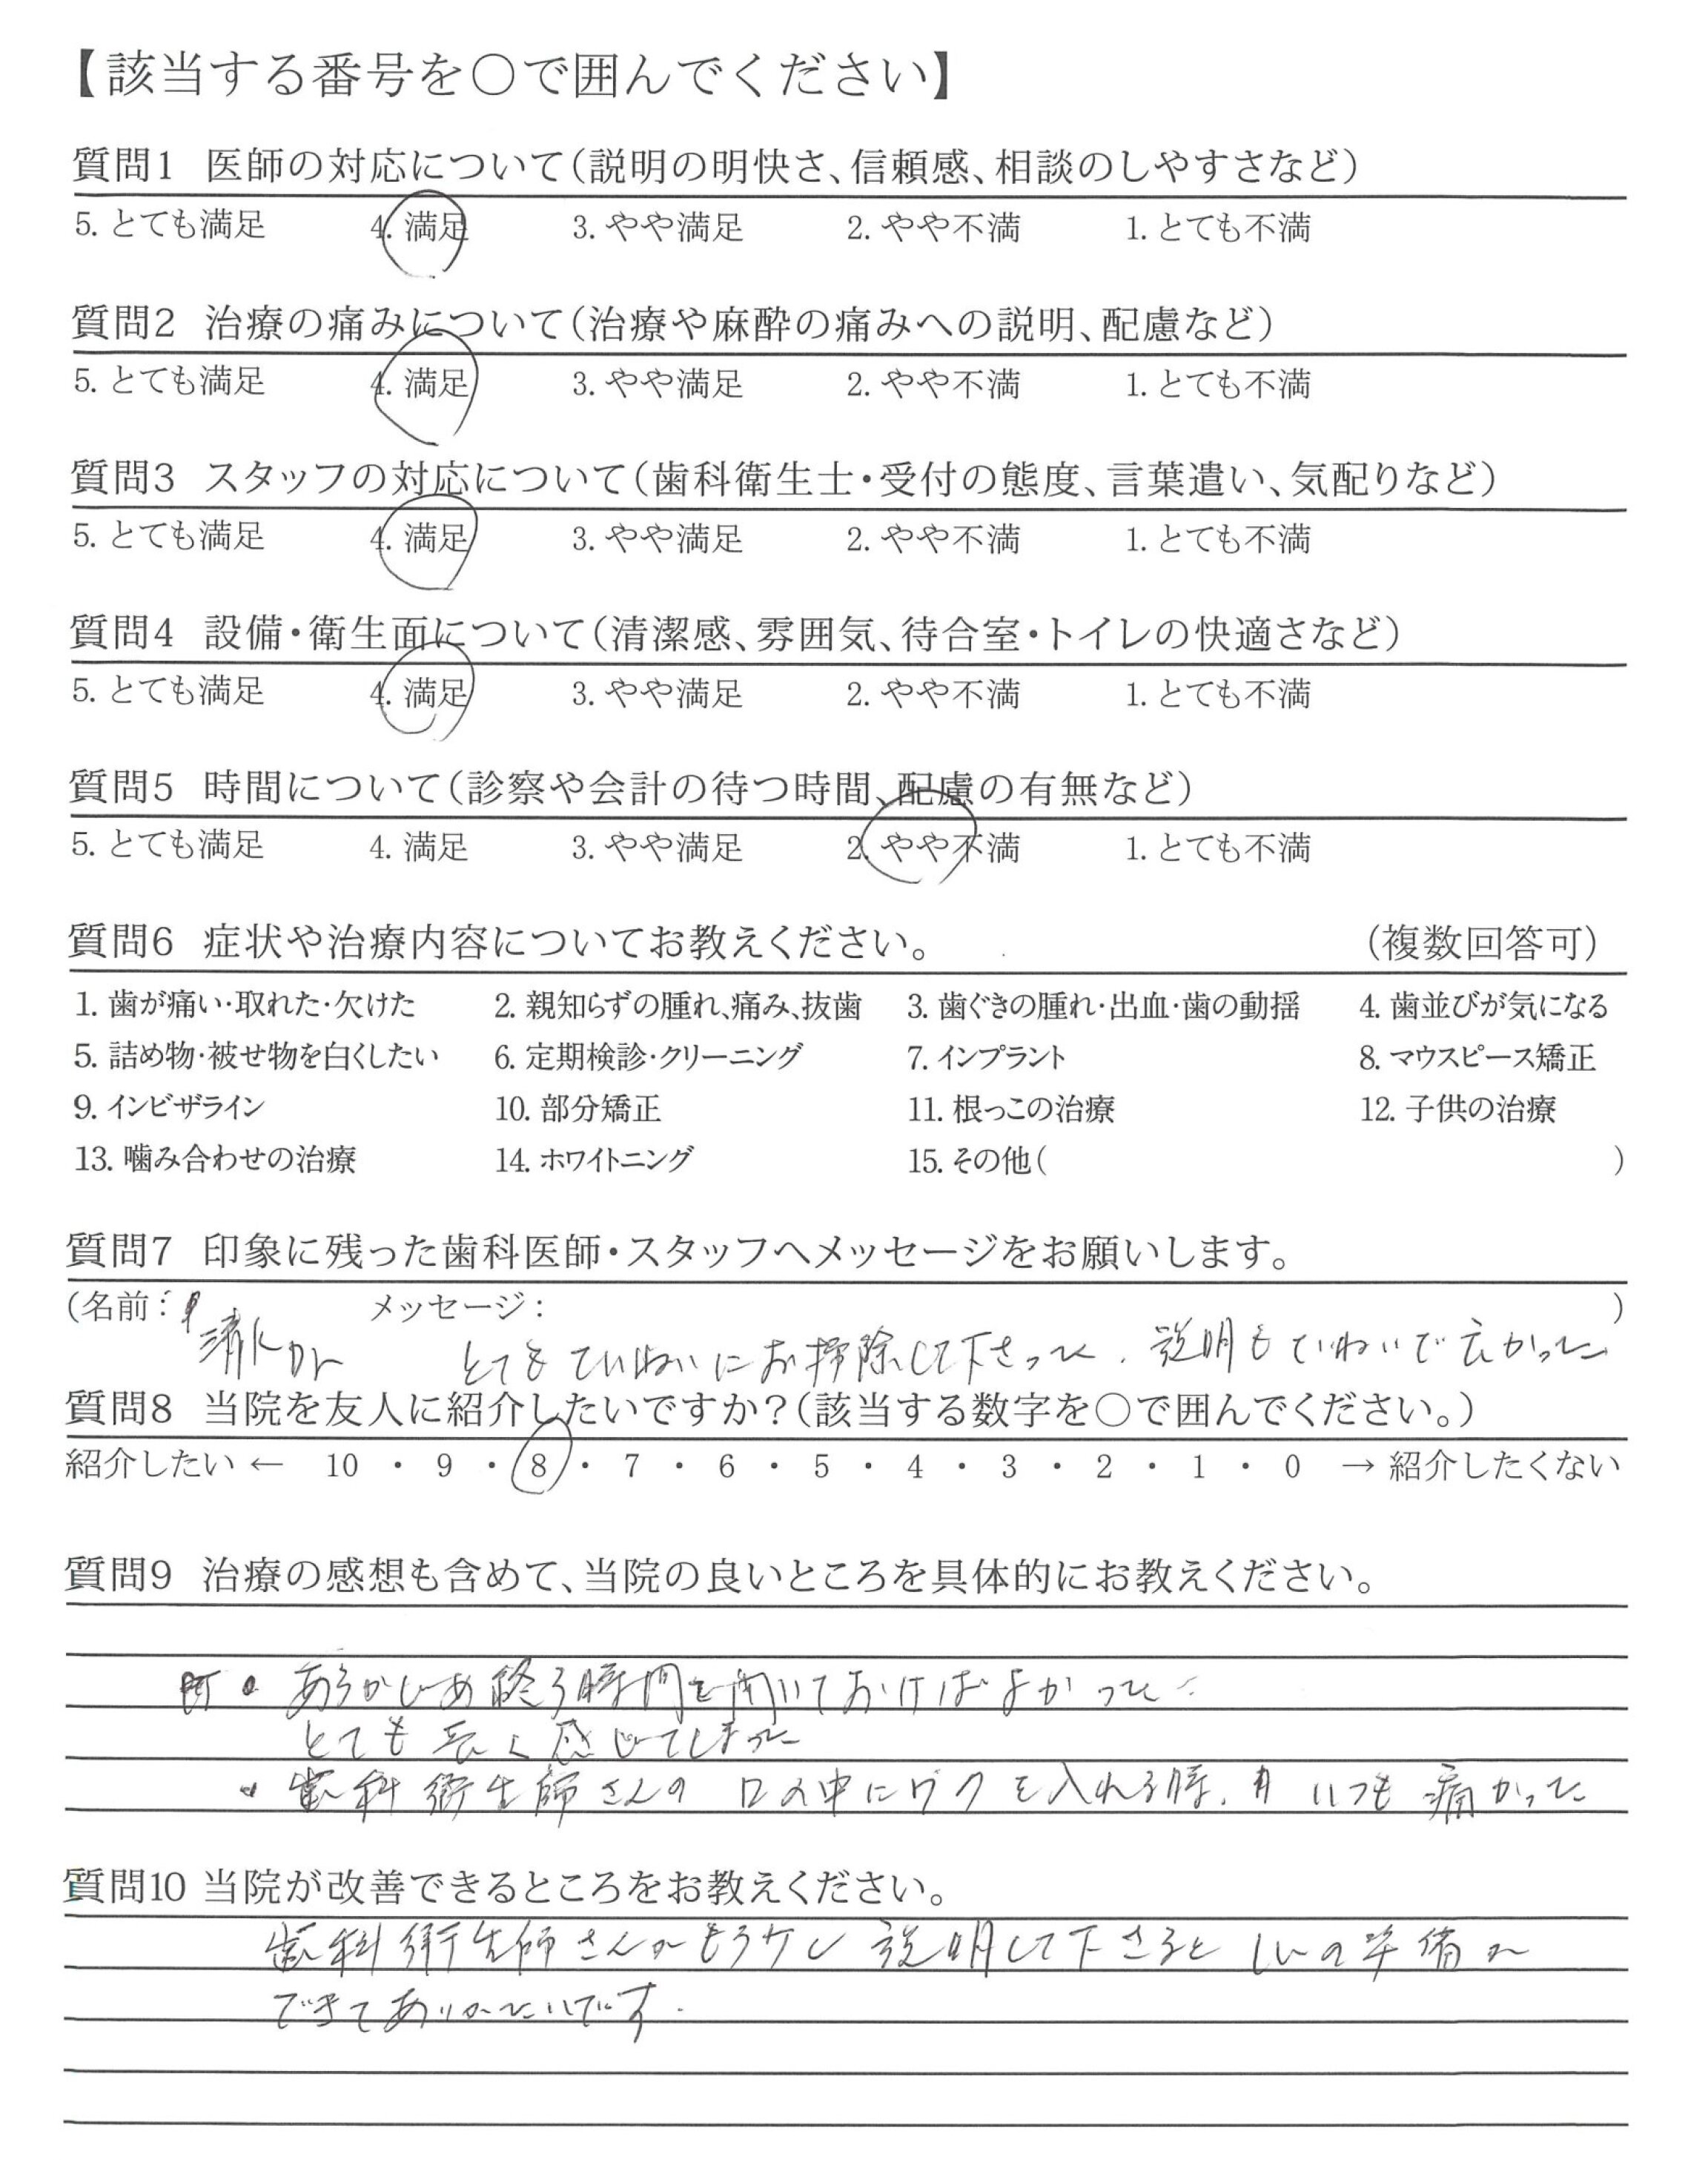 【該当する番号を○で囲んでください】
質問1 医師の対応について(説明の明快さ、信頼感、相談のしやすさなど)
5. とても満足 4. 満足 3. やや満足 2. やや不満 1. とても不満
質問2 治療の痛みについて(治療や麻酔の痛みへの説明、配慮など)
5. とても満足 4. 満足 3. やや満足 2. やや不満 1. とても不満
質問3 スタッフの対応について(歯科衛生士・受付の態度、言葉遣い、気配りなど)
5. とても満足 4. 満足 3. やや満足 2. やや不満 1. とても不満
質問4 設備・衛生面について(清潔感、雰囲気、待合室・トイレの快適さなど)
5. とても満足 4. 満足 3. やや満足 2. やや不満 1. とても不満
質問5 時間について(診察や会計の待つ時間、配慮の有無など)
5. とても満足 4. 満足 3. やや満足 2. やや不満 1. とても不満
質問6 症状や治療内容についてお教えください。 (複数回答可)
1. 歯が痛い・取れた・欠けた 2. 親知らずの腫れ、痛み、抜歯 3. 歯ぐきの腫れ・出血・歯の動揺 4. 歯並びが気になる
5. 詰め物・被せ物を白くしたい 6. 定期検診・クリーニング 7. インプラント 8. マウスピース矯正
9. インビザライン 10. 部分矯正 11. 根っこの治療 12. 子供の治療
13. 噛み合わせの治療 14. ホワイトニング 15. その他( )
質問7 印象に残った歯科医師・スタッフへメッセージをお願いします。
(名前: メッセージ: )
とてもていねいにお掃除して下さった、説明もていねいで良かった
質問8 当院を友人に紹介したいですか?(該当する数字を○で囲んでください。)
紹介したい ← 10 ・ 9 ・ 8 ・ 7 ・ 6 ・ 5 ・ 4 ・ 3 ・ 2 ・ 1 ・ 0 → 紹介したくない
質問9 治療の感想も含めて、当院の良いところを具体的にお教えください。
・ あらかじめ終る時間を聞いておけばよかった
とても長く感じてしまった
・ 歯科衛生師さんの 口の中に を入れる時、いつも痛かった
質問10 当院が改善できるところをお教えください。
歯科衛生師さんがもう少し説明して下さると 心の準備が
できてありがたいです.